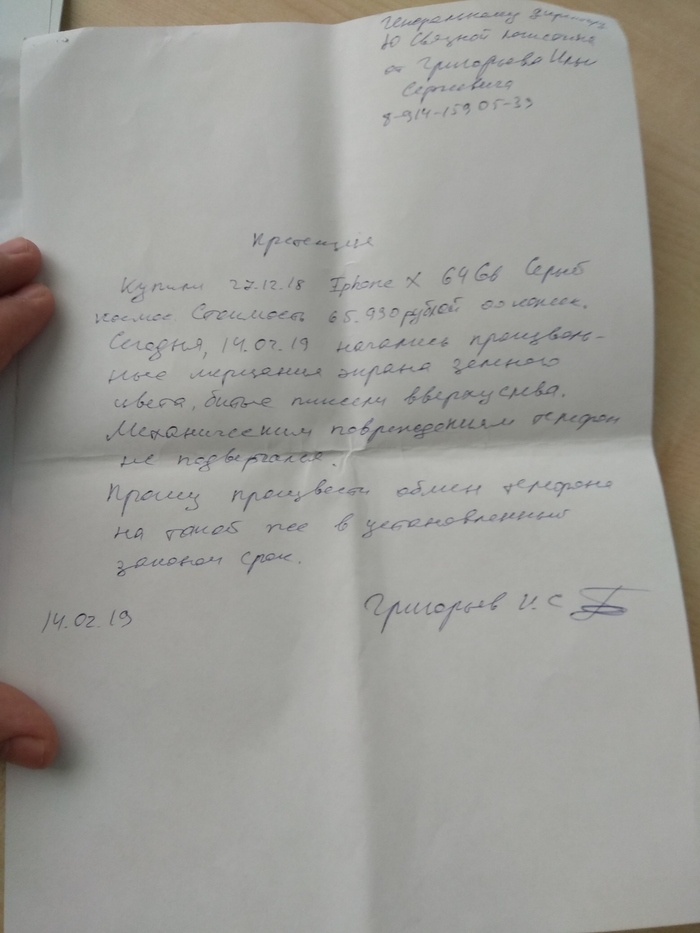 Генеральному директору
от Григорьева Ильи
Сергеевича
8-914-159 05-39
Претензия
Купили 27.12.18 Iphone X 64Gb Серый
космос. Стоимость 65.990 рублей 00 копеек.
Сегодня, 14.02.19 начались произволь-
ные мерцания экрана зеленого
цвета, битые пиксели вверху слева.
Механическим повреждениям телефон
не подвергался.
Прошу произвести обмен телефона
на такой же в установленный
законом срок.
14.02.19 Григорьев И.С